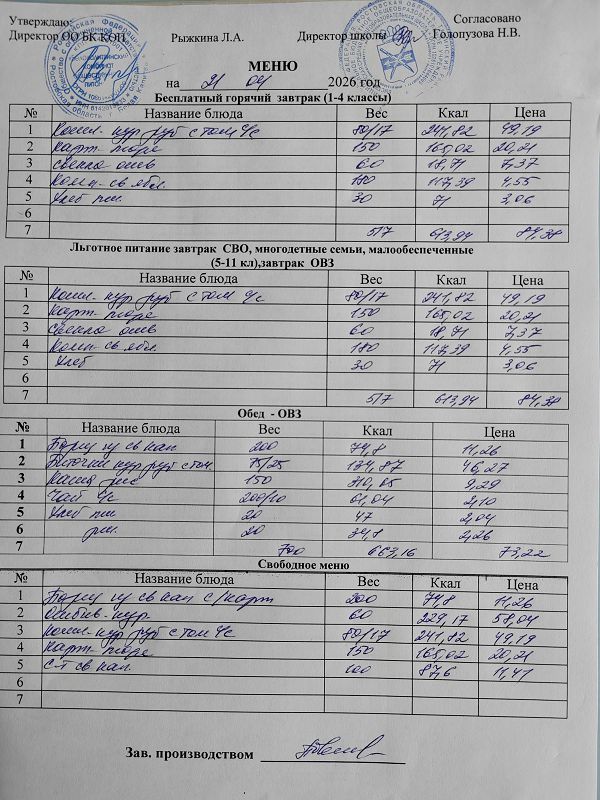 Утверждаю:
Согласовано
Директор ОО БК КОП Рыжкина Л.А. Директор школы Голопузова Н.В.
МЕНЮ
на 21 04 2026 год
Бесплатный горячий завтрак (1-4 классы)
№ Название блюда Вес Ккал Цена
1 Котл- кур руб с том ч/с 80/17 241,82 49,19
2 Карт- пюре 150 165,02 20,21
3 свекла отв 60 18,71 7,37
4 Комп- св ябл. 180 117,39 4,55
5 Хлеб пш. 30 71 3,06
6
7 517 613,94 84,38
Льготное питание завтрак СВО, многодетные семьи, малообеспеченные
(5-11 кл),завтрак ОВЗ
№ Название блюда Вес Ккал Цена
1 Котл- кур руб с том ч/с 80/17 241,82 49,19
2 Карт- пюре 150 165,02 20,21
3 Свекла отв 60 18,71 7,37
4 Комп- св ябл. 180 117,39 4,55
5 Хлеб 30 71 3,06
6
7 517 613,94 84,38
Обед - ОВЗ
№ Название блюда Вес Ккал Цена
1 Борщ из св кап 200 74,8 11,26
2 Биточки кур руб с том 75/25 134,87 46,27
3 Каша рис 150 310,65 9,29
4 Чай ч/с 200/10 61,04 2,10
5 Хлеб пш 20 47 2,04
6 рж. 20 34,8 2,26
7 700 663,16 73,22
Свободное меню
№ Название блюда Вес Ккал Цена
1 Борщ из св кап с/карт 200 74,8 11,26
2 Отбив- кур. 60 229,17 58,04
3 Котл- кур руб с том ч/с 80/17 241,82 49,19
4 Карт- пюре 150 165,02 20,21
5 С-т св кап. 100 87,6 11,41
6
7
Зав. производством